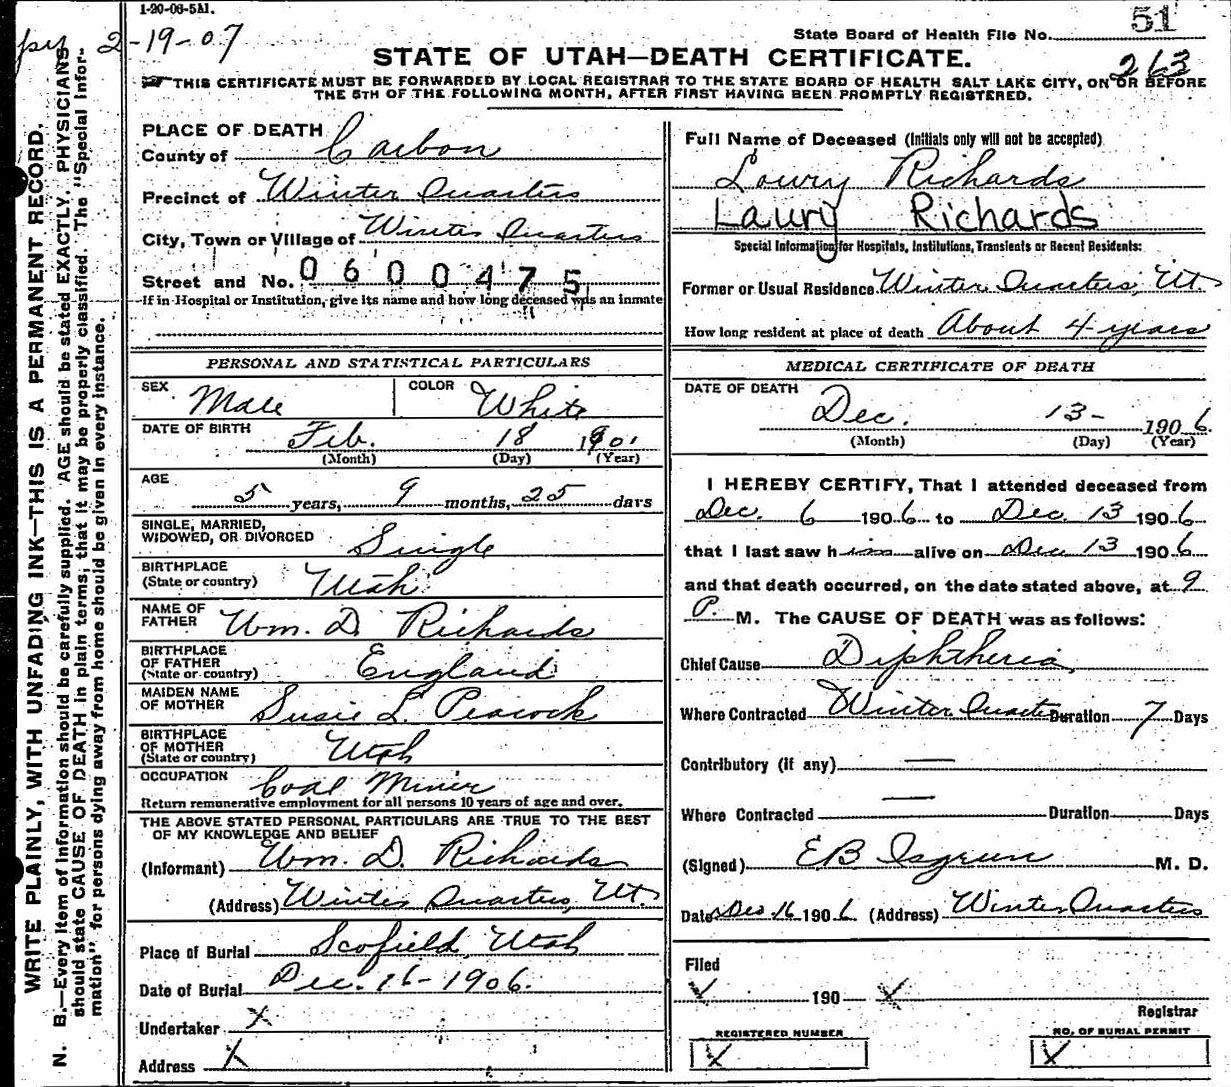 1-20-06-5M.
2-19-07
51
State Board of Health File No.
263
STATE OF UTAH—DEATH CERTIFICATE.
THIS CERTIFICATE MUST BE FORWARDED BY LOCAL REGISTRAR TO THE STATE BOARD OF HEALTH SALT LAKE CITY, ON OR BEFORE
THE 5TH OF THE FOLLOWING MONTH, AFTER FIRST HAVING BEEN PROMPTLY REGISTERED.
WRITE PLAINLY, WITH UNFADING INK—THIS IS A PERMANENT RECORD.
N. B.—Every item of information should be carefully supplied. AGE should be stated EXACTLY. PHYSICIANS
should state CAUSE OF DEATH in plain terms, that it may be properly classified. The "Special Infor-
mation" for persons dying away from home should be given in every instance.
PLACE OF DEATH
County of Carbon
Precinct of Winter Quarters
City, Town or Village of Winter Quarters
Street and No. 0600475
If in Hospital or Institution, give its name and how long deceased was an inmate
PERSONAL AND STATISTICAL PARTICULARS
SEX Male COLOR White
DATE OF BIRTH Feb. 18 1901
(Month) (Day) (Year)
AGE
5 years, 9 months, 25 days
SINGLE, MARRIED,
WIDOWED, OR DIVORCED Single
BIRTHPLACE
(State or country) Utah
NAME OF
FATHER Wm. D. Richards
BIRTHPLACE
OF FATHER
(State or country) England
MAIDEN NAME
OF MOTHER Susie L. Peacock
BIRTHPLACE
OF MOTHER
(State or country) Utah
OCCUPATION Coal Miner
Return remunerative employment for all persons 10 years of age and over.
THE ABOVE STATED PERSONAL PARTICULARS ARE TRUE TO THE BEST
OF MY KNOWLEDGE AND BELIEF
(Informant) Wm. D. Richards
(Address) Winter Quarters, Ut.
Place of Burial Scofield, Utah
Date of Burial Dec. 16-1906.
Undertaker X
Address X
Full Name of Deceased (Initials only will not be accepted)
Lowry Richards
Laury Richards
Special Information for Hospitals, Institutions, Transients or Recent Residents:
Former or Usual Residence Winter Quarters, Ut.
How long resident at place of death About 4 years
MEDICAL CERTIFICATE OF DEATH
DATE OF DEATH
Dec. 13- 1906.
(Month) (Day) (Year)
I HEREBY CERTIFY, That I attended deceased from
Dec. 6 1906 to Dec. 13 1906
that I last saw him alive on Dec 13 1906
and that death occurred, on the date stated above, at 9
P. M. The CAUSE OF DEATH was as follows:
Chief Cause Diphtheria
Where Contracted Winter Quarters Duration 7 Days
Contributory (if any) —
Where Contracted — Duration Days
(Signed) EB Isgreen M. D.
Date Dec 16 1906 (Address) Winter Quarters
Filed
X 190 X
Registrar
REGISTERED NUMBER NO. OF BURIAL PERMIT
X X